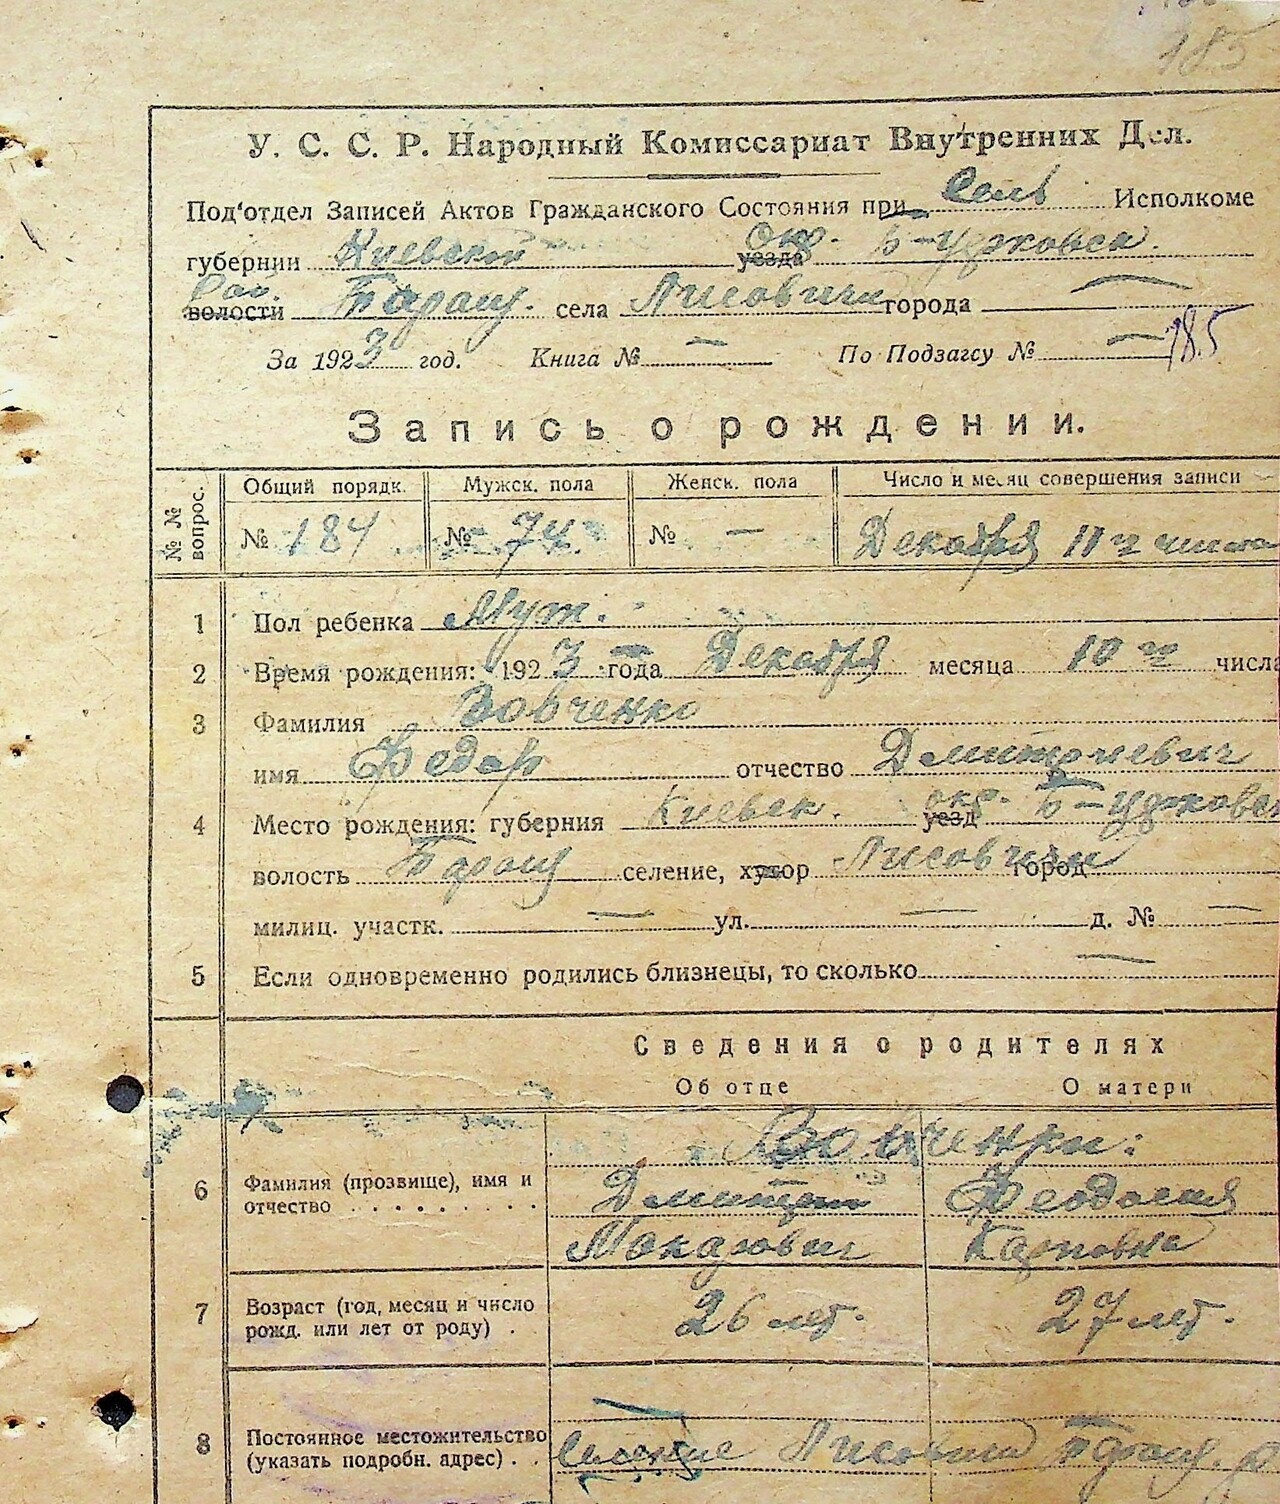 185
У. С. С. Р. Народный Комиссариат Внутренних Дел.
Под'отдел Записей Актов Гражданского Состояния при Сель Исполкоме
губернии Киевской уезда окр. Б-Церковск.
волости Рай. Таращ. села Лисовичи города —
За 1923 год. Книга № — По Подзагсу № — 185
Запись о рождении.
№ № вопрос. Общий порядк. Мужск. пола Женск. пола Число и месяц совершения записи
№ 184 № 74 № — Декабря 11го числа
1 Пол ребенка Муж.
2 Время рождения: 1923 года Декабря месяца 10го числа
3 Фамилия Вовченко
имя Федор отчество Дмитриевич
4 Место рождения: губерния Киевск. уезд окр. Б-Церковск
волость Таращ селение, хутор Лисовичи город
милиц. участк. — ул. — д. № —
5 Если одновременно родились близнецы, то сколько —
Сведения о родителях
Об отце О матери
Вовченки:
6 Фамилия (прозвище), имя и Дмитрий Феодосия
отчество . . . . . . . . . . Макарович Карповна
7 Возраст (год, месяц и число 26 лет. 27 лет.
рожд. или лет от роду) .
8 Постоянное местожительство
(указать подробн. адрес) . . Селение Лисовичи Таращ. р.